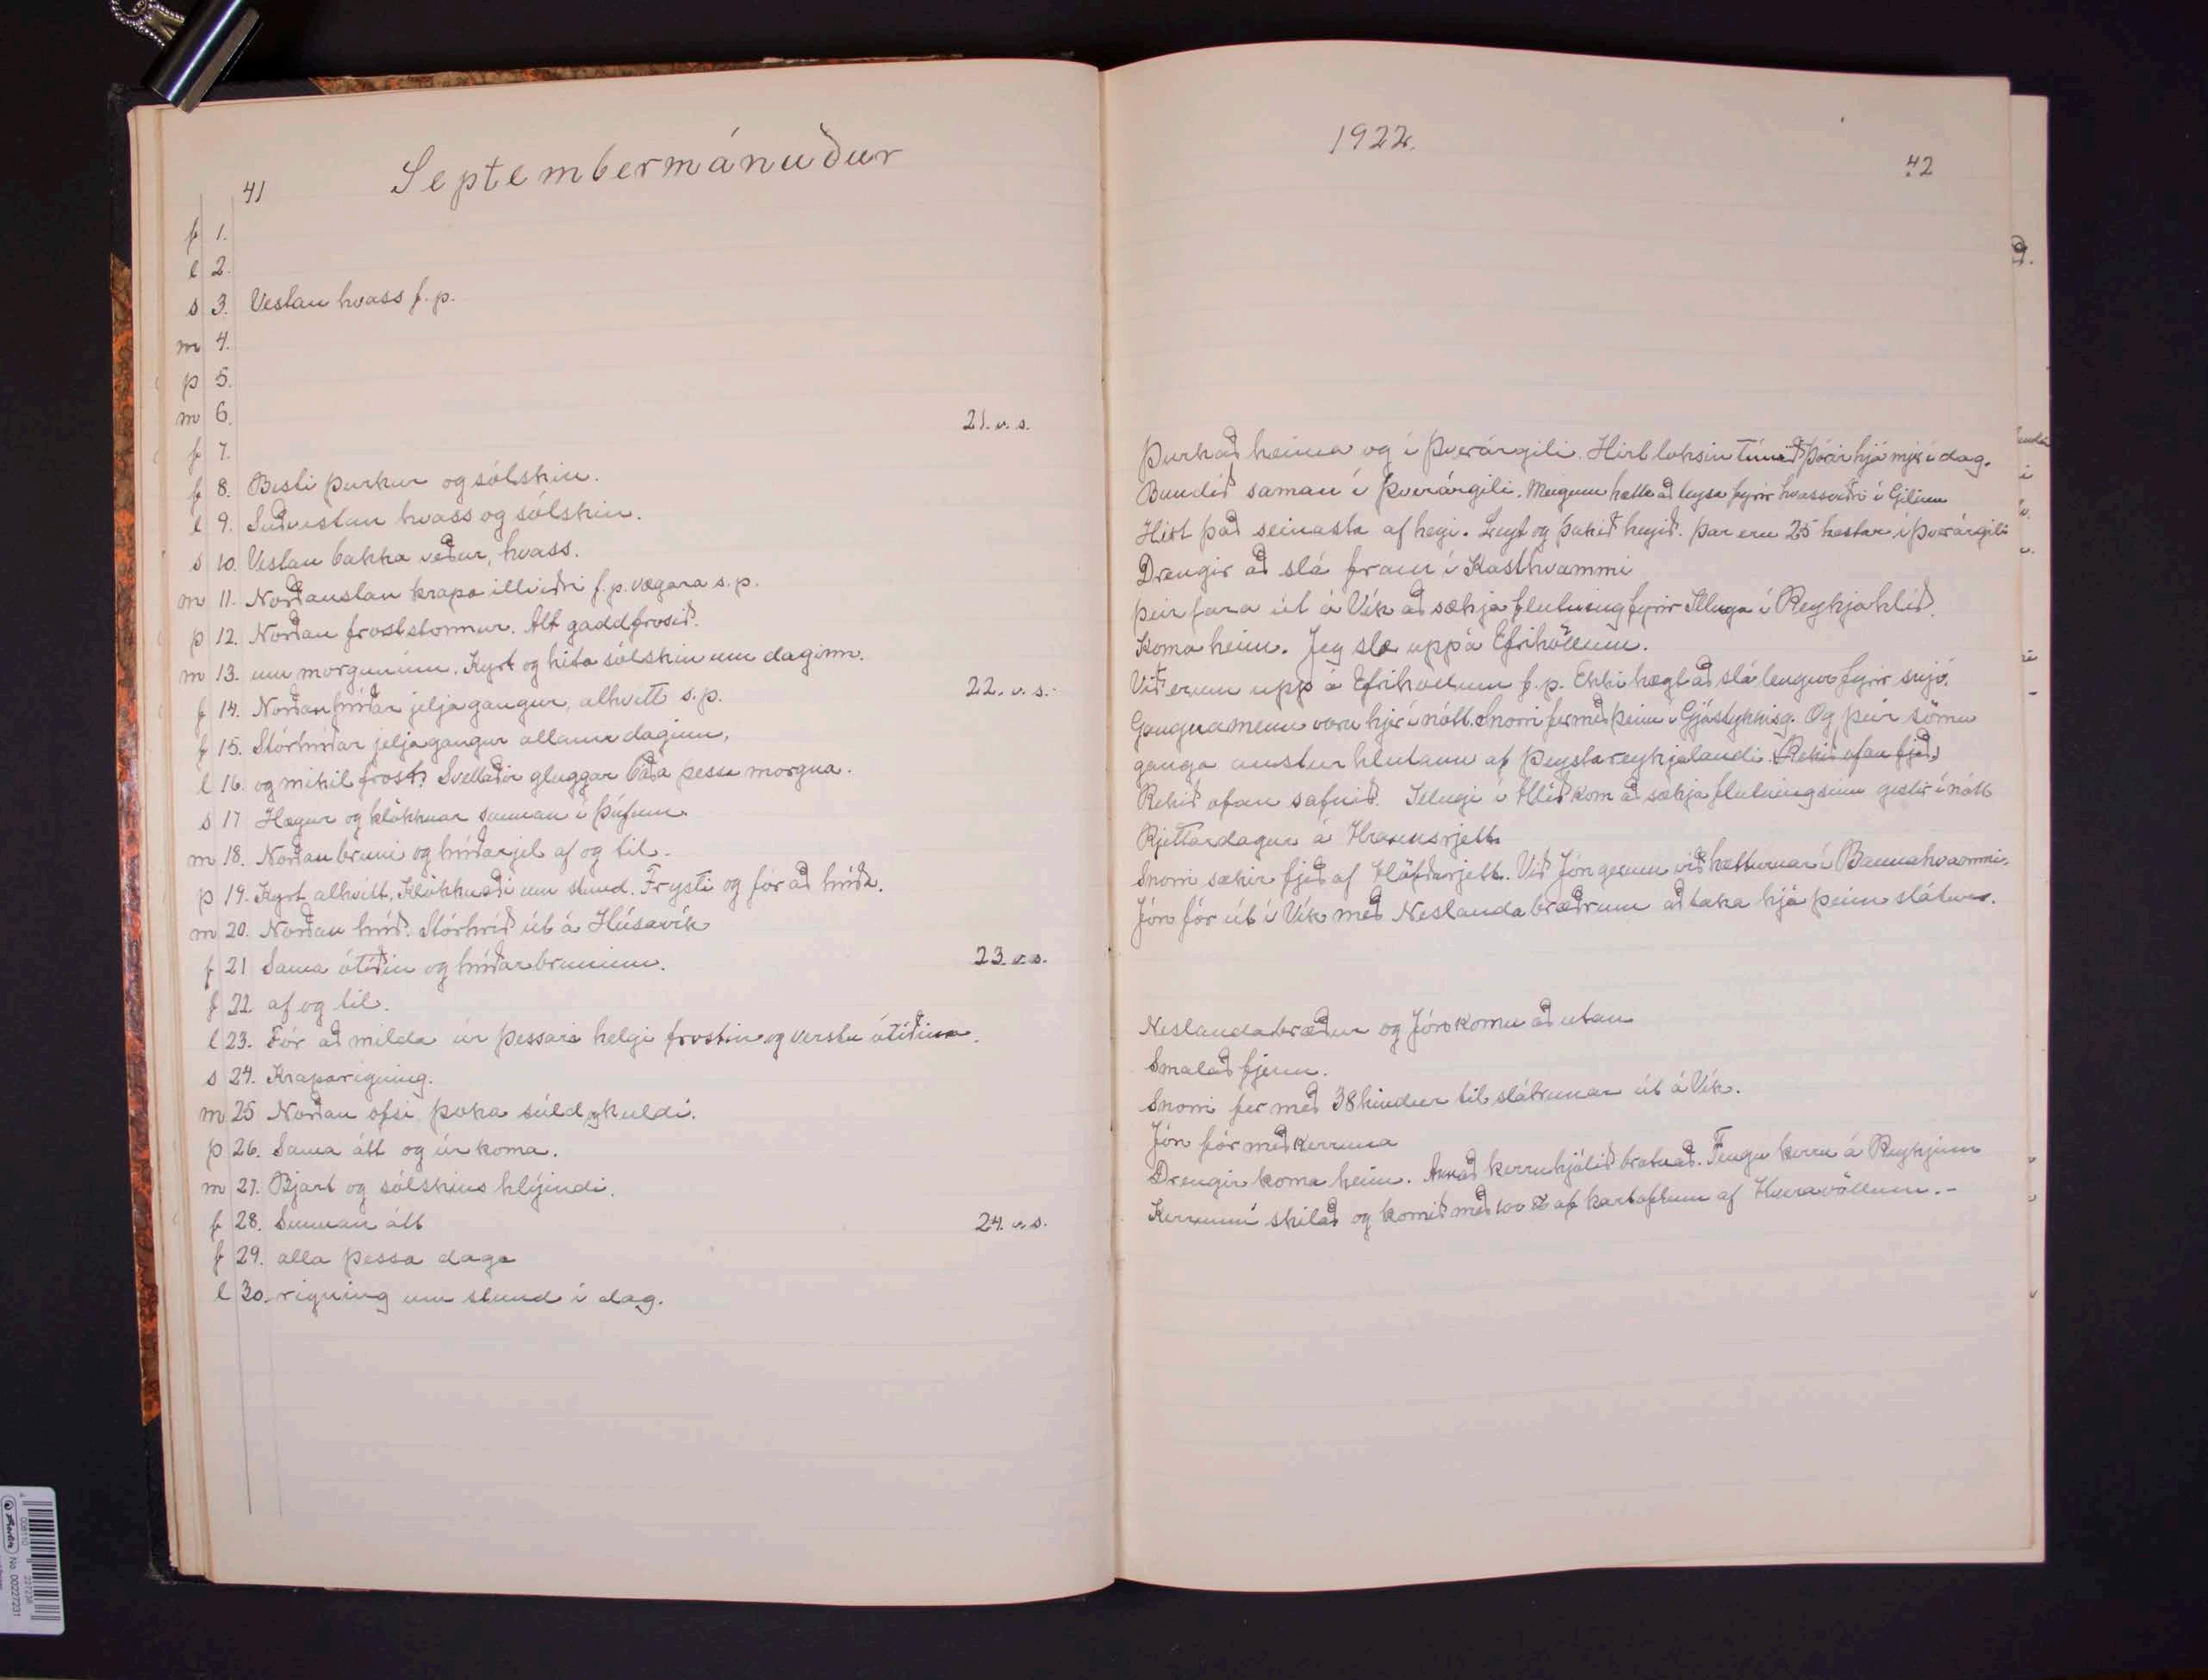 41
Septembermánuður
f 1.
l 2.
s 3. Vestan hvass f.p.
m 4.
þ 5.
m 6.
21. v.s.
f 7.
f 8. Besti þurkur og sólskin.
l 9. Suðvestan hvass og sólskin.
s 10. Vestan bakka veður, hvass.
m 11. Norðaustan krapa illviðri f.p. vægara s.p.
þ 12. Norðan froststormur. Alt gaddfrosið.
m 13. um morguninn. Kyrt og hita sólskin um daginn.
22. v.s.
f 14. Norðan hríðar jeljagangur, alhvítt s.p.
f 15. Stórhríðar jeljagangur allann daginn,
l 16. og mikil frost. Svellaðir gluggar báða þessa morgna.
s 17 Hægur og klökknar sunnan í þúfum.
m 18. Norðan bruni og hríðarjel af og til.
þ 19. Kyrt alhvítt. Klökknaði um stund. Frysti og fór að hríða.
m 20. Norðan hríð. Stórhríð út á Húsavík
23. v.s.
f 21 Sama ótíðin og hríðarbruninn.
f 22 af og til.
l 23. Fór að milda úr þessari helgi frostin og verstu ótíðina.
s 24. Kraparigning.
m 25 Norðan ofsi þoka súld og kuldi.
þ 26. Sama átt og úrkoma.
m 27. Bjart og sólskins hlýindi.
24. v.s.
f 28. Sunnan átt
f 29. alla þessa daga
l 30. rigning um stund í dag.
1922.
42
Þurkað heima og í Þverárgili. Hirt loksin túnið þórir hjá mjer í dag.
Bundið saman í Þverárgili. Meigum hætta að leysa fyrir hvassviðri í Gilinu
Hirt það seinasta af heyi. Leyst og þakið heyið. Þar eru 25 hestar í Þverárgili
Drengir að slá fram í Kasthvammi
Þeir fara út á Vík að sækja flutning fyrir Illuga í Reykjahlíð.
Koma heim. Jeg slæ upp á Efrihöllum.
Við erum upp á Efrihöllum f.p. Ekki hægt að slá lengur fyrir snjó.
Gangnamenn voru hjer í nótt. Snorri fer með þeim í Gjástykkisg. Og þeir sömu
ganga austur hlutann af Þeystareykjalandi. Rekið ofan fjeð
Rekið ofan safnið. Illugi í Hlíð kom að sækja flutning sinn gestir í nótt
Rjettardagur á Hraunsrjett
Snorri sækir fjeð af Höfðarjett. Við Jón gerum við hætturnar í Bannahvammi.
Jón fór út í Vík með Neslanda bræðrum að taka hjá þeim slátur.
Neslandabræður og Jón komu að utan
Smalað fjenu.
Snorri fer með 38 kindur til slátrunar út á Vík.
Jón fór með kerruna
Drengir koma heim. Annað kerruhjólið brotnað. Fengu kerru á Reykjum
Kerrunni skilað og komið með 100 ℔ af kartoflum af Hveravöllum.-